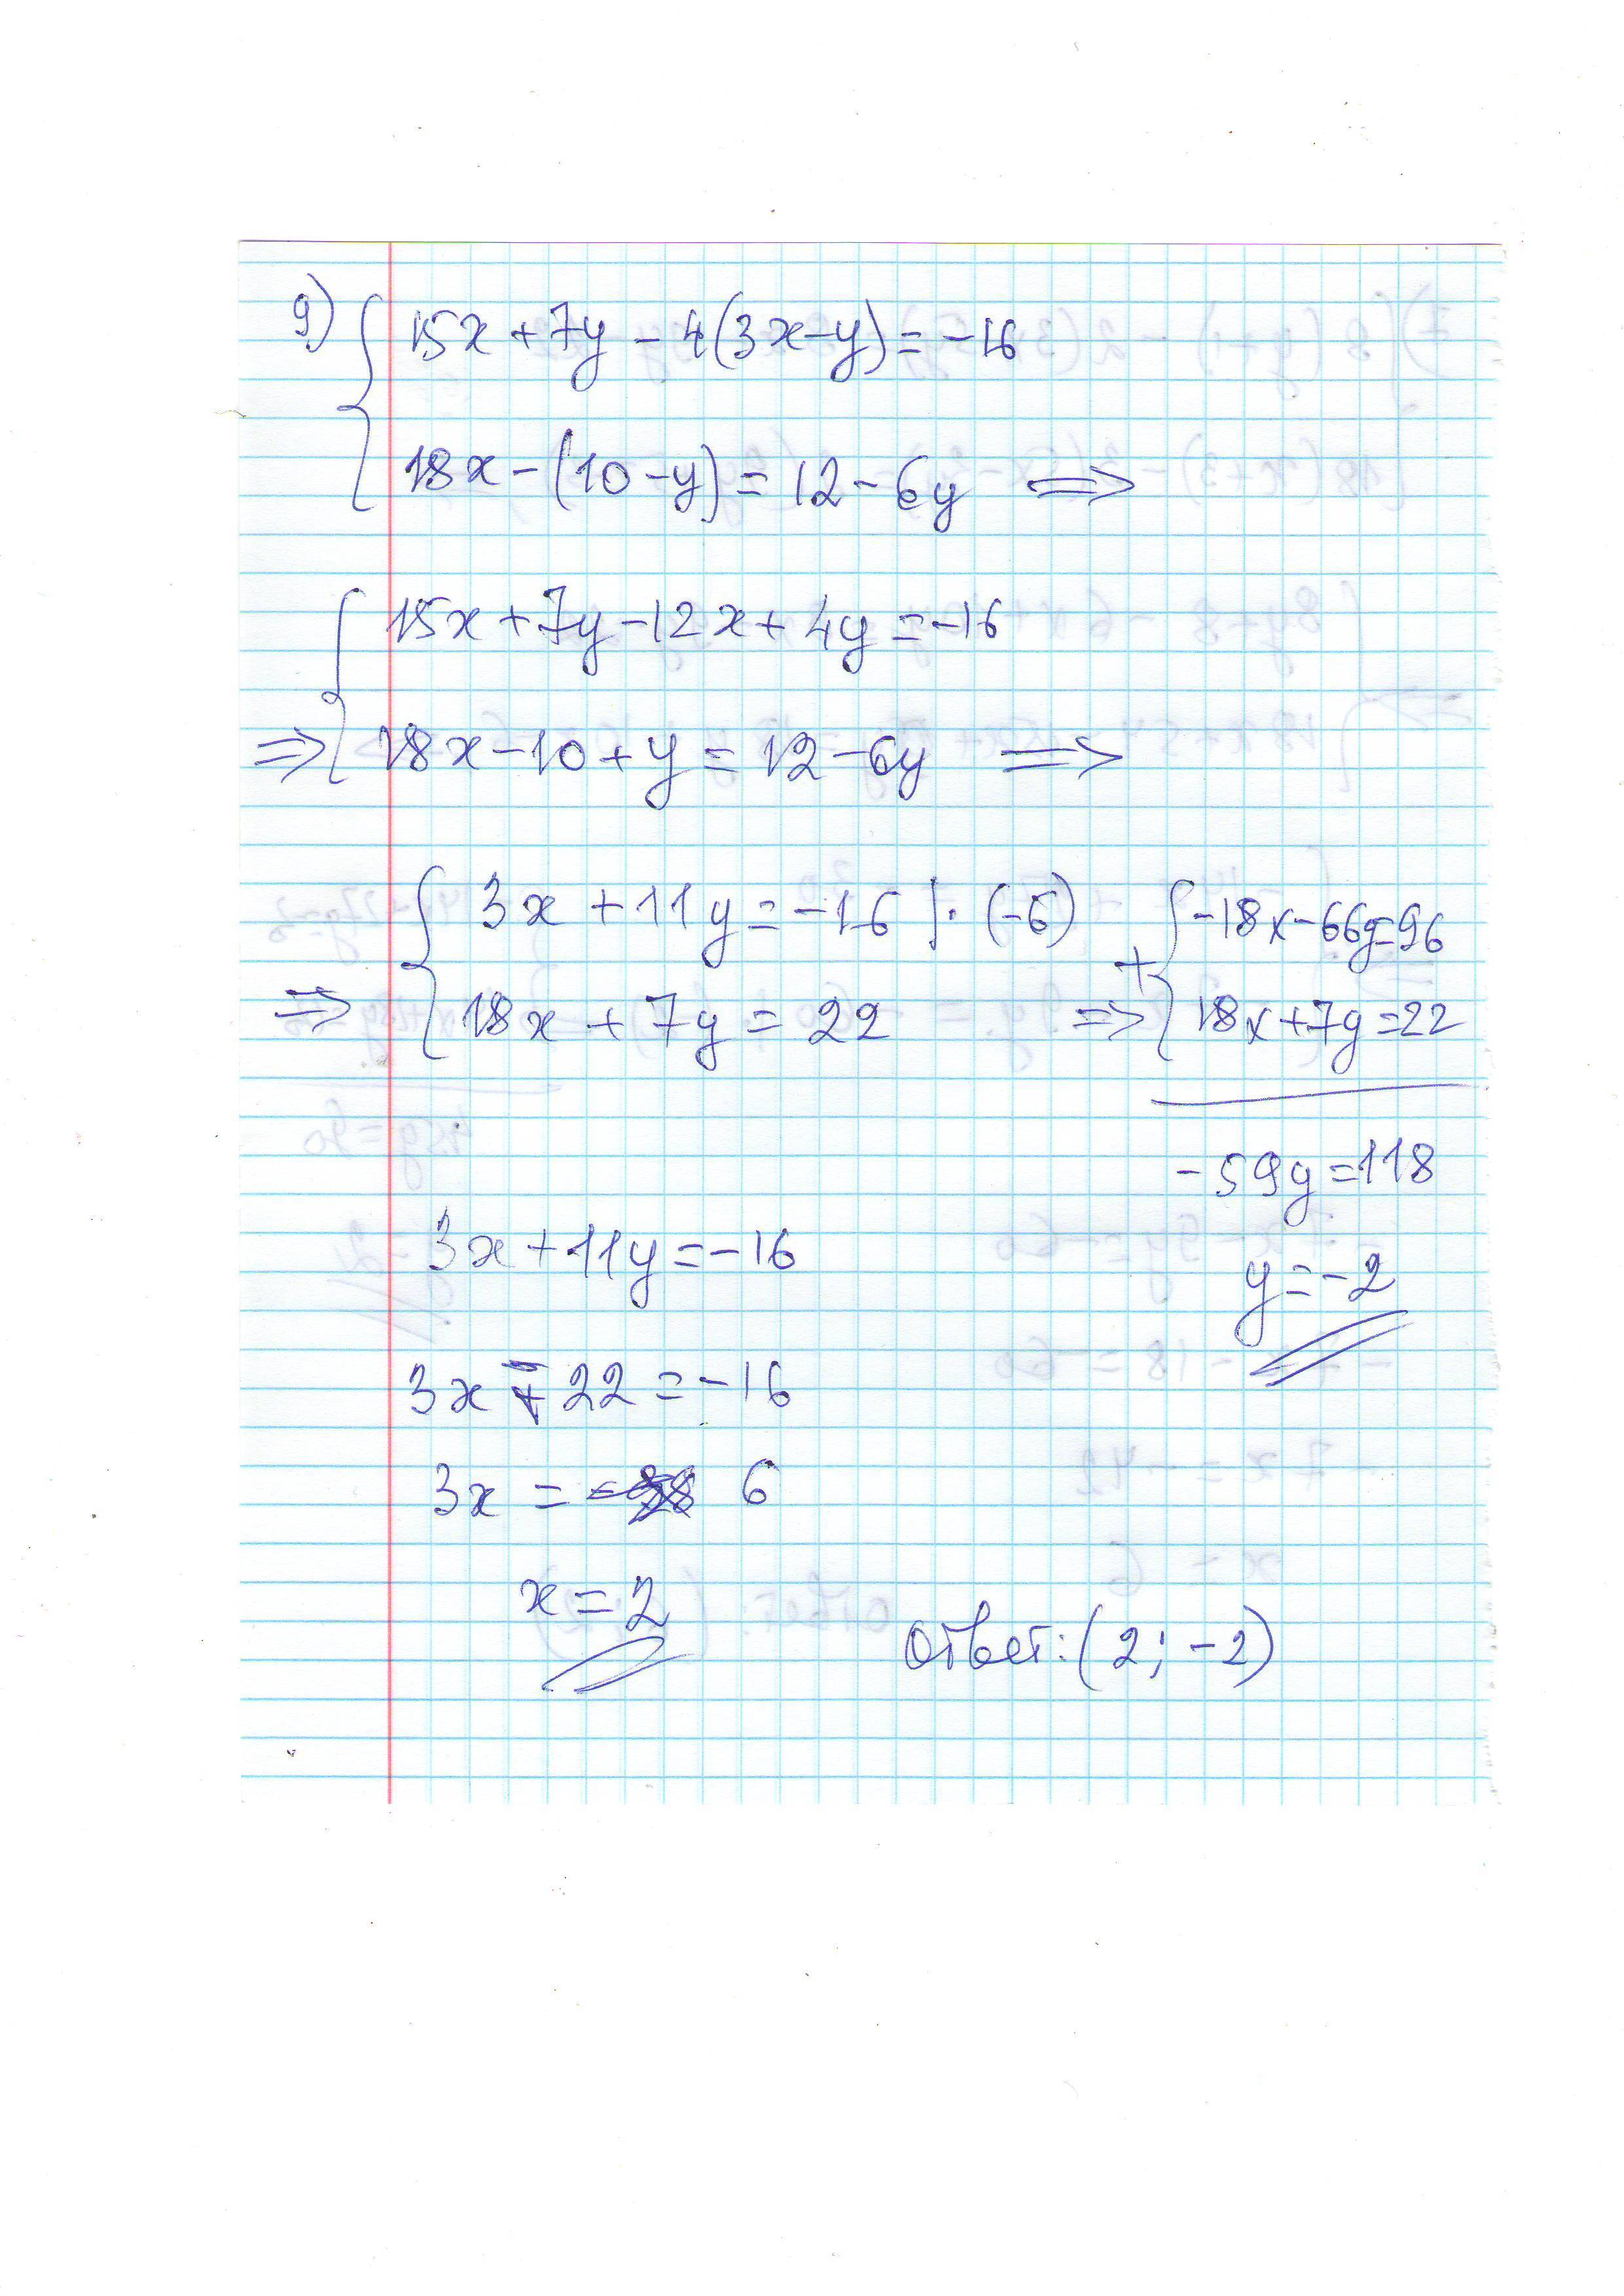 9) { 15x + 7y - 4(3x-y) = -16
18x - (10 - y) = 12 - 6y =>
{ 15x + 7y - 12x + 4y = -16
=> 18x - 10 + y = 12 - 6y =>
{ 3x + 11y = -16 | · (-6) + { -18x - 66y = 96
=> 18x + 7y = 22 => 18x + 7y = 22
-59y = 118
3x + 11y = -16
y = -2
3x - 22 = -16
3x = 6
x = 2
Ответ: (2; -2)